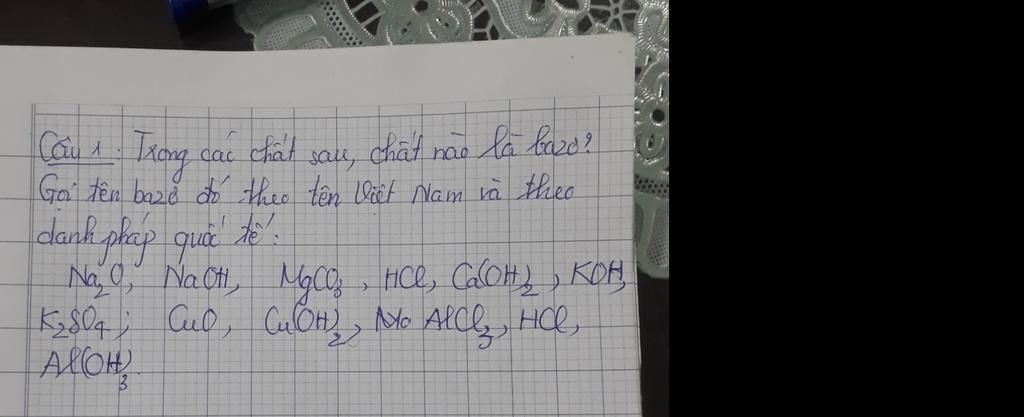 Câu 1. Trong các chất sau, chất nào là bazơ?
Gọi tên bazơ đó theo tên Việt Nam và theo
danh pháp quốc tế:
Na₂O, NaOH, MgCO₃, HCl, Ca(OH)₂, KOH,
K₂SO₄; CuO, Cu(OH)₂, AlCl₃, HCl,
Al(OH)₃.